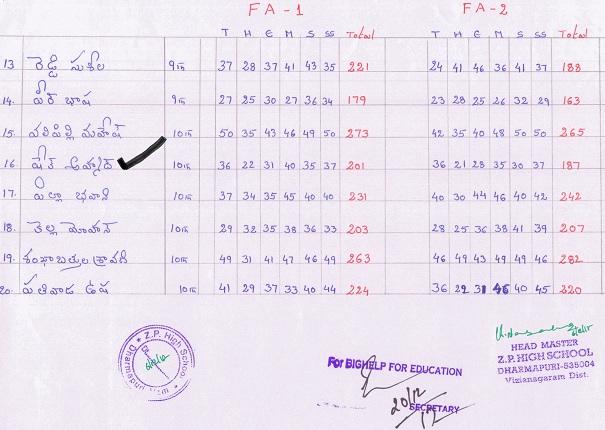 FA-1 FA-2
T H E M S SS Total T H E M S SS Total
13 రెడ్డి సుశీల 9th 37 28 37 41 43 35 221 24 41 46 36 41 37 188
14. పీర్ భాష 9th 27 25 30 27 36 34 179 23 28 25 26 32 29 163
15. వలిపిల్లి మహేష్ 10th 50 35 43 46 49 50 273 42 35 40 48 50 50 265
16. షేక్ 10th 36 22 31 40 35 37 201 36 21 28 35 30 37 187
17. పిల్లా భవాని 10th 37 34 35 45 40 40 231 40 30 44 46 40 42 242
18. కెల్ల మోహన్ 10th 29 32 35 38 36 33 203 28 25 36 38 41 39 207
19. శంఖాబత్తుల శ్రావణి 10th 49 31 41 47 46 49 263 46 49 43 49 49 46 282
20. పతివాడ ఉష 10th 41 29 37 33 40 44 224 36 29 31 46 40 45 220
Z.P. High School
Dharmapuri
For BIGHELP FOR EDUCATION
20/12/12
SECRETARY
HEAD MASTER
Z.P. HIGH SCHOOL
DHARMAPURI-535004
Vizianagaram Dist.